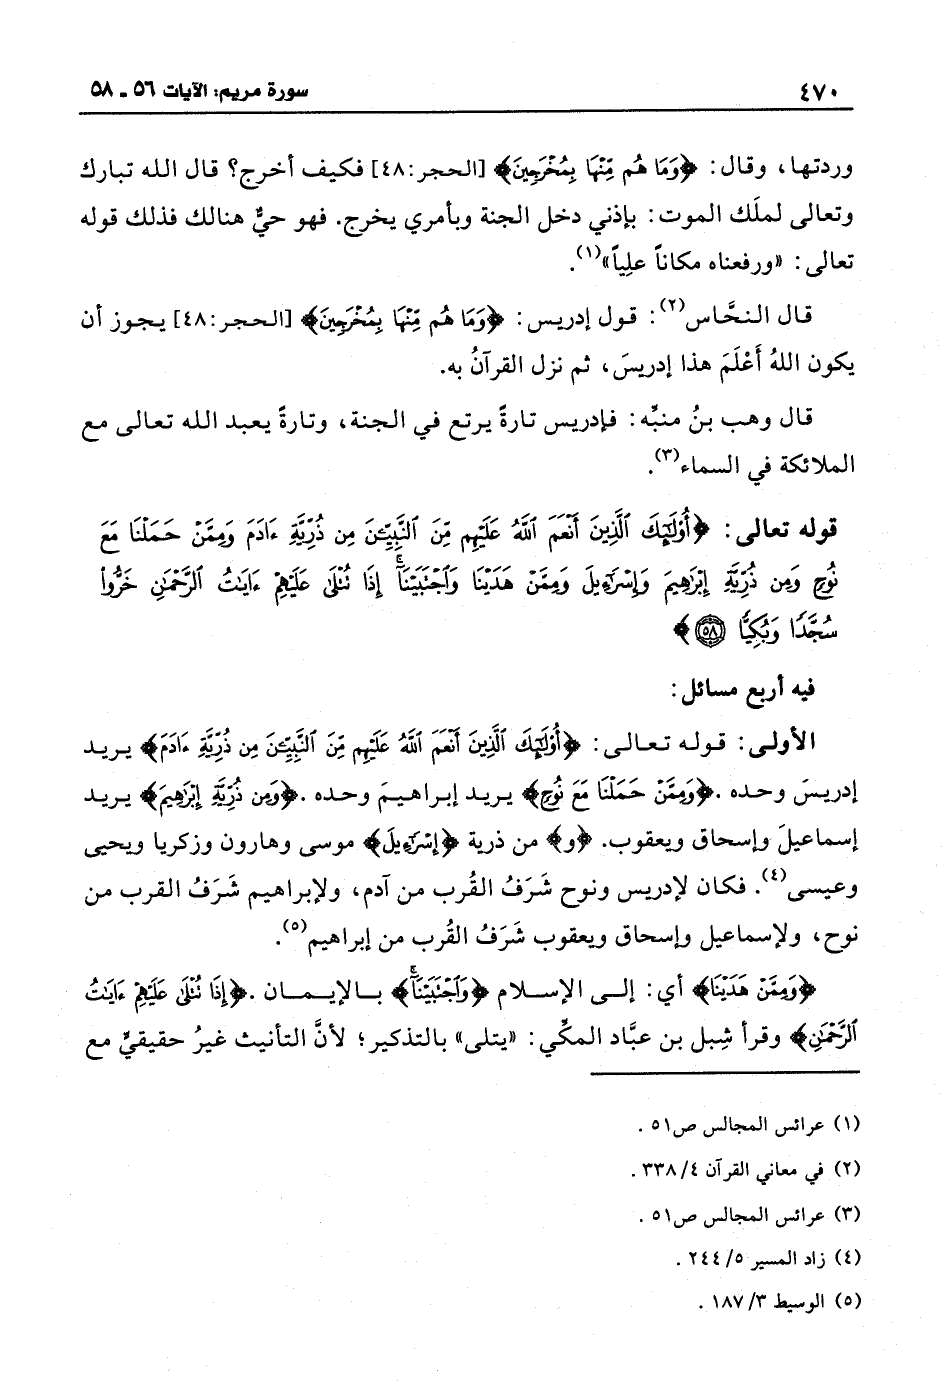 ٤٧٠
سورة مريم: الآيات ٥٦ ـ ٥٨
وردتها، وقال: ﴿وَمَا هُم مِّنْهَا بِمُخْرَجِينَ﴾ [الحجر:٤٨] فكيف أخرج؟ قال الله تبارك
وتعالى لملَك الموت: بإذني دخل الجنة وبأمري يخرج. فهو حيٌّ هنالك فذلك قوله
تعالى: «ورفعناه مكاناً علِياً»(١).
قال النحَّاس(٢): قول إدريس: ﴿وَمَا هُم مِّنْهَا بِمُخْرَجِينَ﴾ [الحجر:٤٨] يجوز أن
يكون اللهُ أَعْلَمَ هذا إدريسَ، ثم نزل القرآنُ به.
قال وهب بنُ منبِّه: فإدريس تارةً يرتع في الجنة، وتارةً يعبد الله تعالى مع
الملائكة في السماء(٣).
قوله تعالى: ﴿أُوْلَٰٓئِكَ ٱلَّذِينَ أَنْعَمَ ٱللَّهُ عَلَيْهِم مِّنَ ٱلنَّبِيِّـۧنَ مِن ذُرِّيَّةِ ءَادَمَ وَمِمَّنْ حَمَلْنَا مَعَ
نُوحٍ وَمِن ذُرِّيَّةِ إِبْرَٰهِيمَ وَإِسْرَٰٓءِيلَ وَمِمَّنْ هَدَيْنَا وَٱجْتَبَيْنَآ ۚ إِذَا تُتْلَىٰ عَلَيْهِمْ ءَايَٰتُ ٱلرَّحْمَٰنِ خَرُّوا۟
سُجَّدًا وَبُكِيًّا ۩ ٥٨﴾
فيه أربع مسائل:
الأولى: قوله تعالى: ﴿أُوْلَٰٓئِكَ ٱلَّذِينَ أَنْعَمَ ٱللَّهُ عَلَيْهِم مِّنَ ٱلنَّبِيِّـۧنَ مِن ذُرِّيَّةِ ءَادَمَ﴾ يريد
إدريسَ وحده. ﴿وَمِمَّنْ حَمَلْنَا مَعَ نُوحٍ﴾ يريد إبراهيمَ وحده. ﴿وَمِن ذُرِّيَّةِ إِبْرَٰهِيمَ﴾ يريد
إسماعيلَ وإسحاق ويعقوب. ﴿و﴾ من ذرية ﴿إِسْرَٰٓءِيلَ﴾ موسى وهارون وزكريا ويحيى
وعيسى(٤). فكان لإدريس ونوح شَرَفُ القُرب من آدم، ولإبراهيم شَرَفُ القرب من
نوح، ولإسماعيل وإسحاق ويعقوب شَرَفُ القُرب من إبراهيم(٥).
﴿وَمِمَّنْ هَدَيْنَا﴾ أي: إلى الإسلام ﴿وَٱجْتَبَيْنَآ ۚ﴾ بالإيمان. ﴿إِذَا تُتْلَىٰ عَلَيْهِمْ ءَايَٰتُ
ٱلرَّحْمَٰنِ﴾ وقرأ شِبل بن عبَّاد المكِّي: «يتلى» بالتذكير؛ لأنَّ التأنيث غيرُ حقيقيٍّ مع
(١) عرائس المجالس ص٥١ .
(٢) في معاني القرآن ٤/ ٣٣٨ .
(٣) عرائس المجالس ص٥١ .
(٤) زاد المسير ٥/ ٢٤٤ .
(٥) الوسيط ٣/ ١٨٧ .